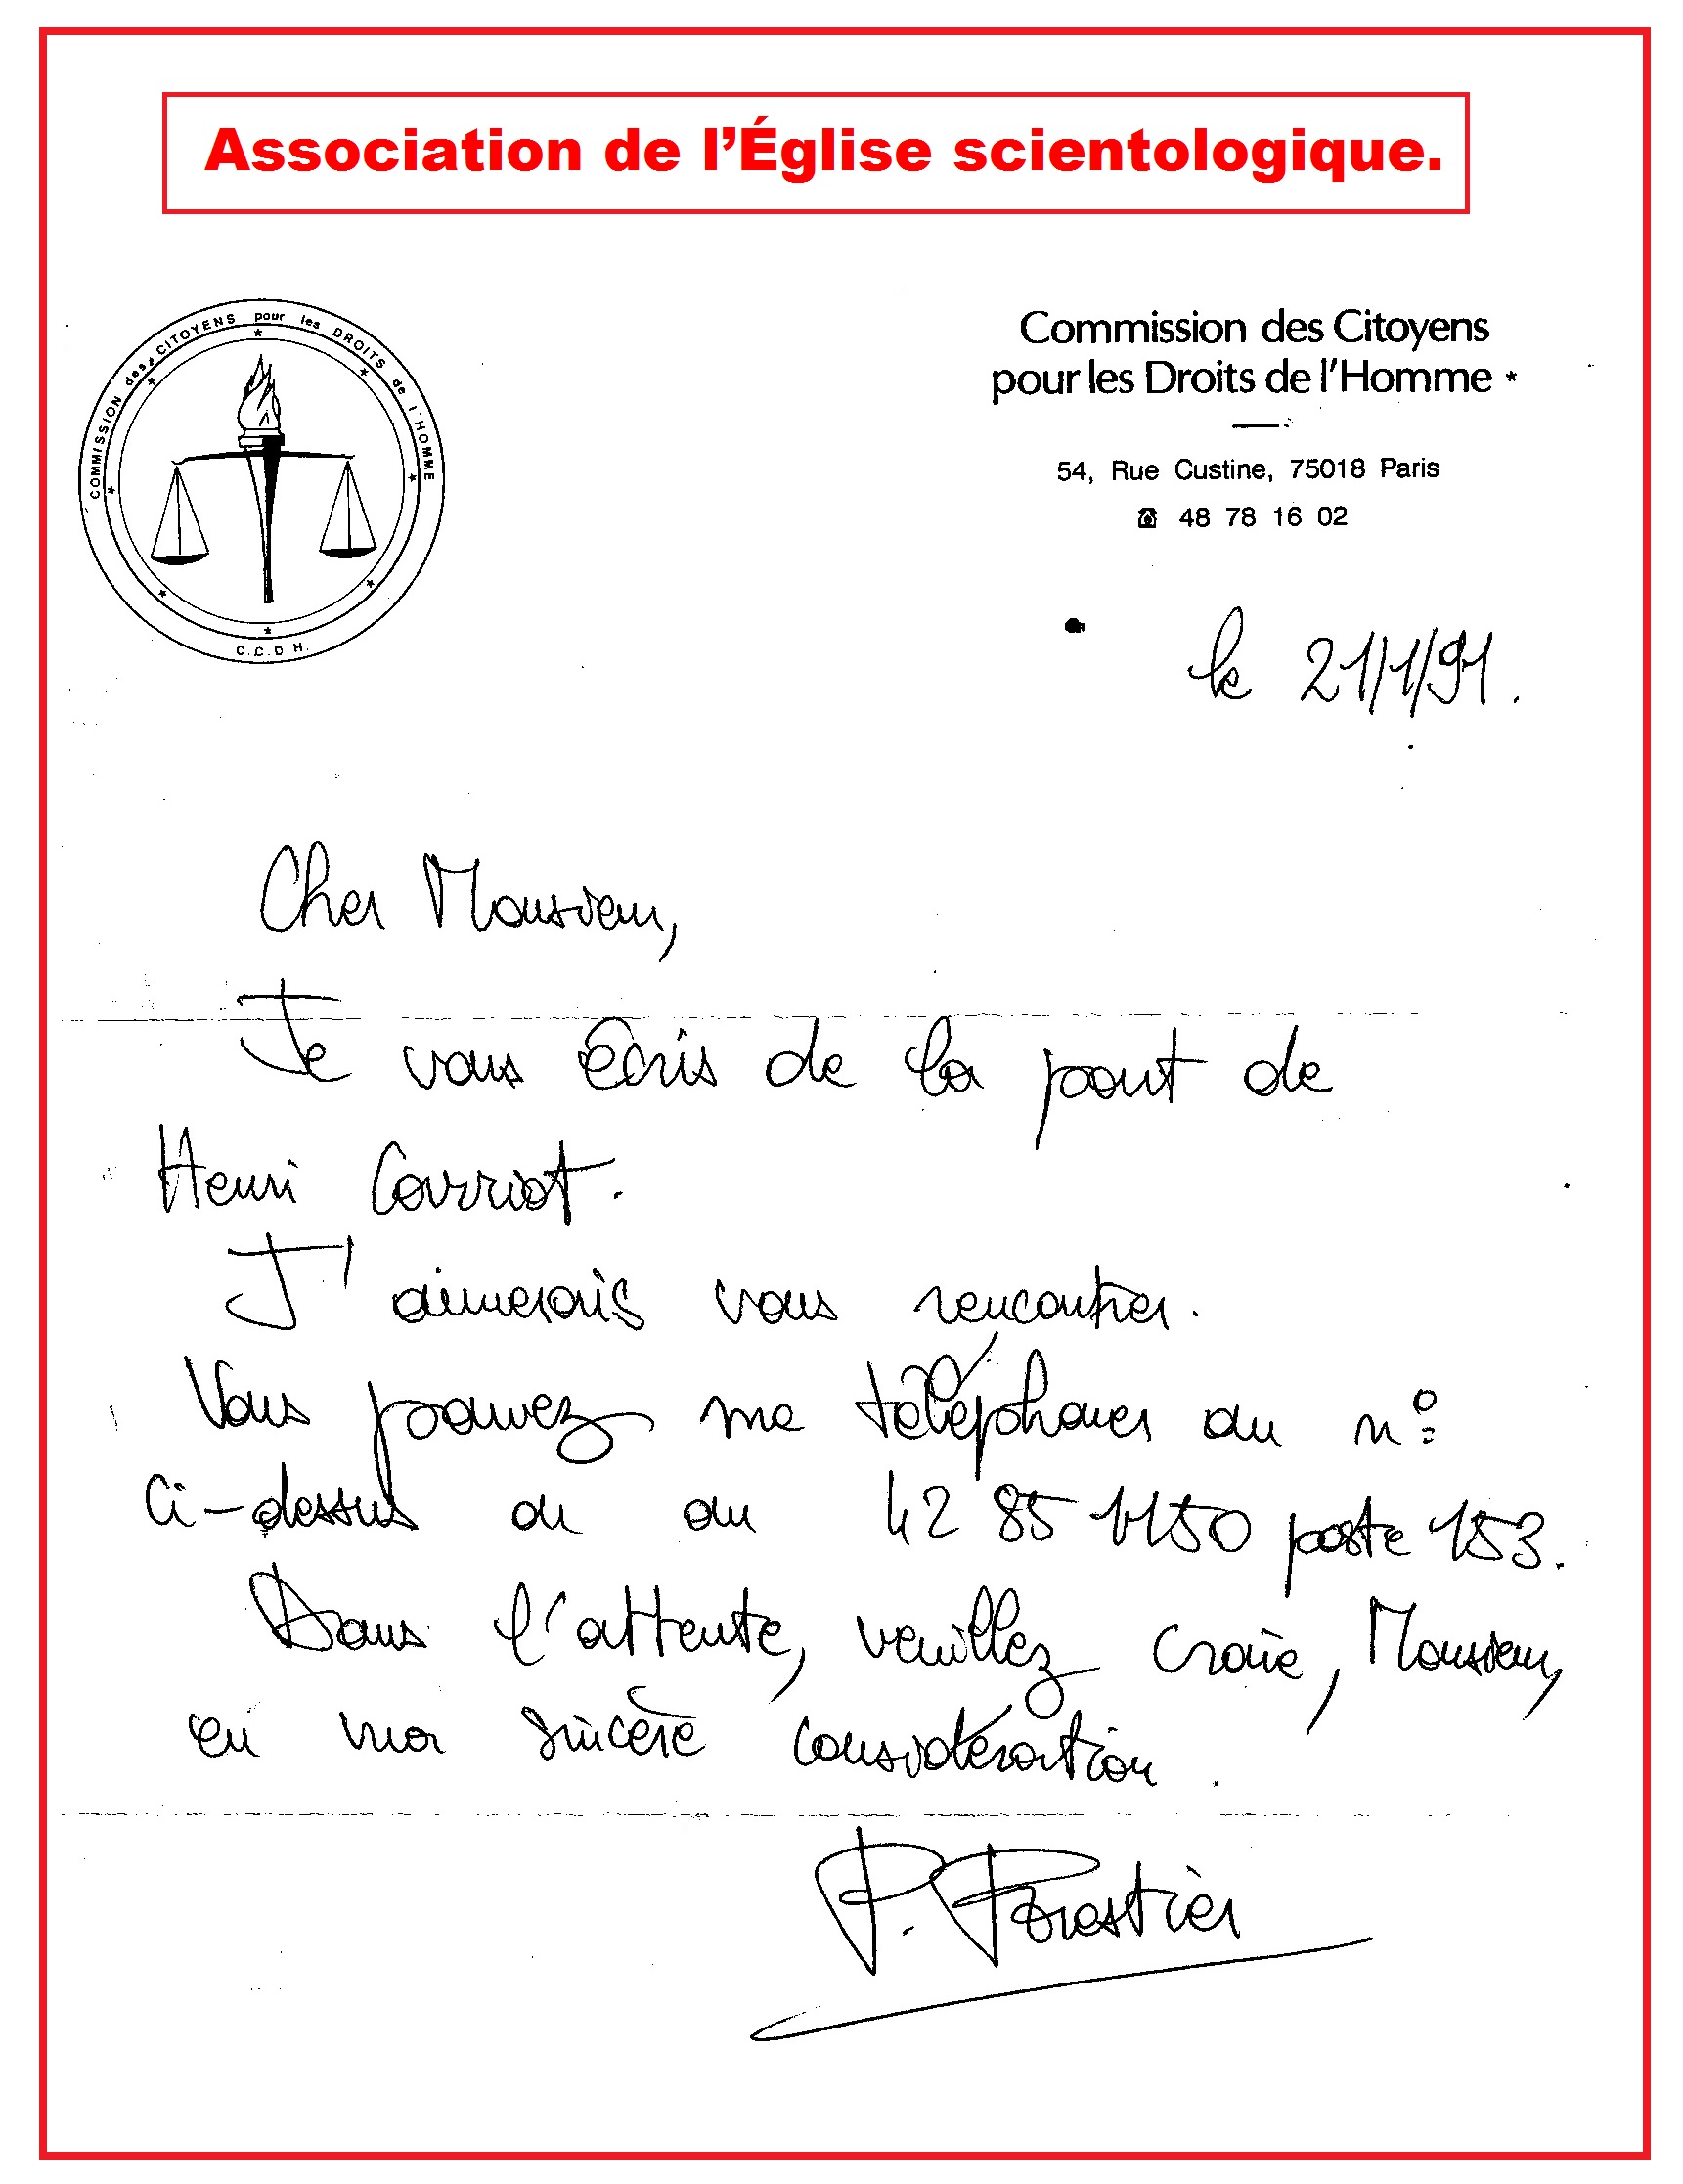 Association de l'Église scientologique.
COMMISSION des CITOYENS pour les DROITS de l'HOMME
C.C.D.H.
Commission des Citoyens
pour les Droits de l'Homme *
54, Rue Custine, 75018 Paris
☎ 48 78 16 02
le 21/1/91.
Cher Monsieur,
Je vous écris de la part de
Henri Courriot.
J'aimerais vous rencontrer.
Vous pouvez me téléphoner au n°
ci-dessus ou au 42 85 1150 poste 153.
Dans l'attente, veuillez croire, Monsieur,
en ma sincère considération.
P. Forestier